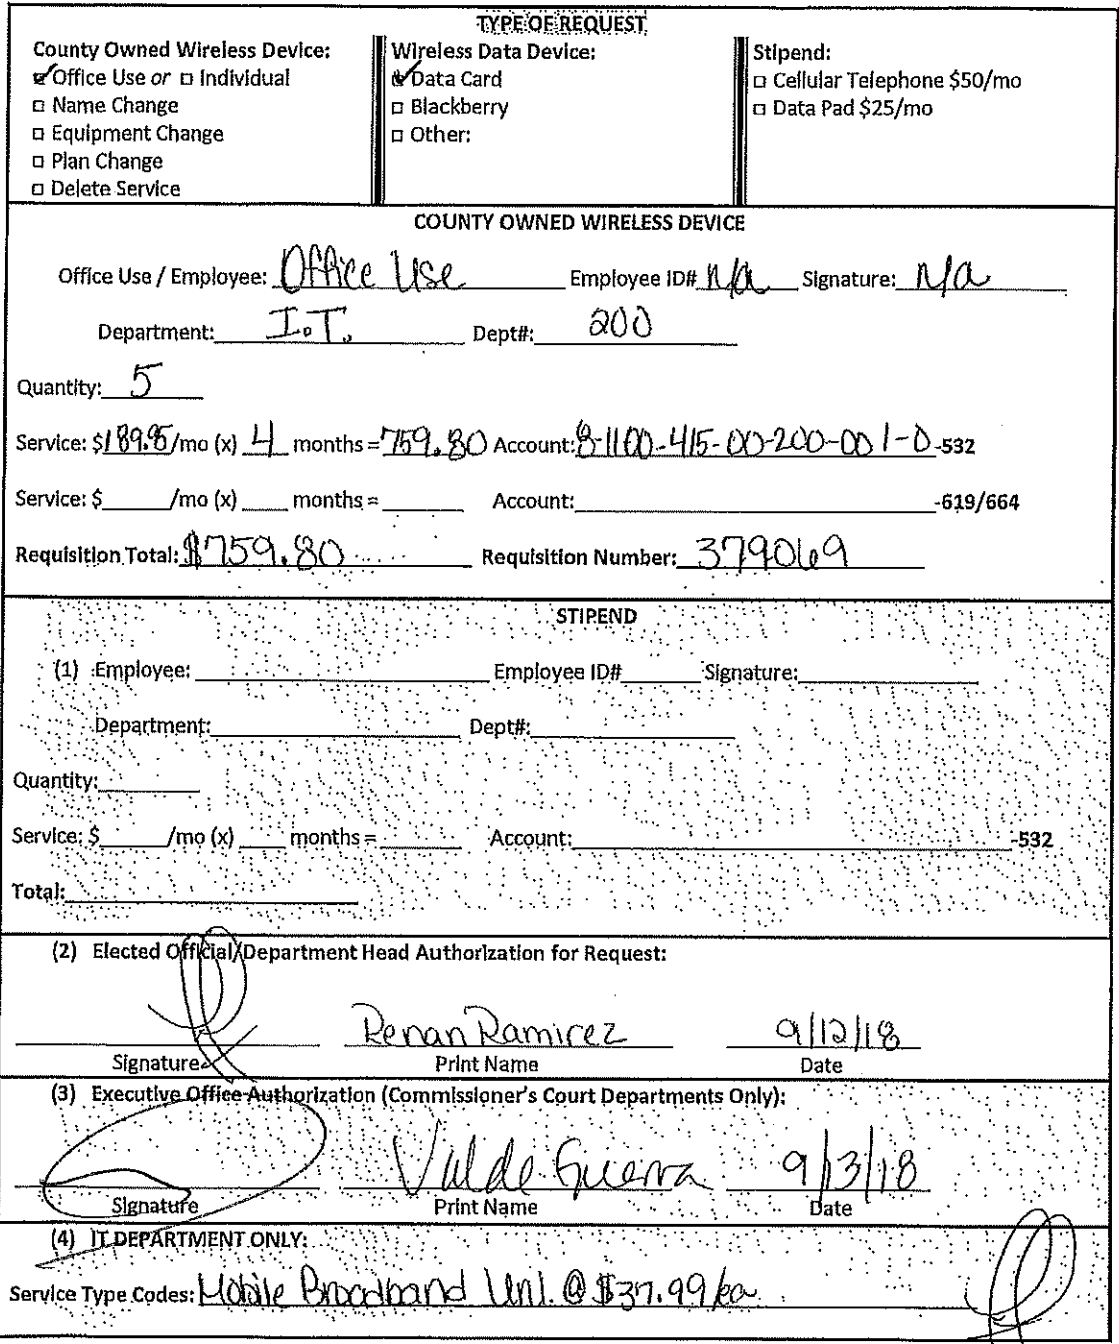 TYPE OF REQUEST
County Owned Wireless Device:
☑ Office Use or □ Individual
□ Name Change
□ Equipment Change
□ Plan Change
□ Delete Service
Wireless Data Device:
☑ Data Card
□ Blackberry
□ Other:
Stipend:
□ Cellular Telephone $50/mo
□ Data Pad $25/mo
COUNTY OWNED WIRELESS DEVICE
Office Use / Employee: Office Use Employee ID# N/a Signature: N/a
Department: I.T. Dept#: 200
Quantity: 5
Service: $189.95/mo (x) 4 months = 759.80 Account: 8-1100-415-00-200-001-0-532
Service: $_____/mo (x) ____ months = ______ Account: ______-619/664
Requisition Total: $759.80 Requisition Number: 379069
STIPEND
(1) Employee: ______ Employee ID#______ Signature: ______
Department: ______ Dept#: ______
Quantity: ______
Service: $_____/mo (x) ____ months = ______ Account: ______-532
Total: ______
(2) Elected Official/Department Head Authorization for Request:
Renan Ramirez 9/12/18
Signature Print Name Date
(3) Executive Office Authorization (Commissioner's Court Departments Only):
Valde Guerra 9/13/18
Signature Print Name Date
(4) IT DEPARTMENT ONLY:
Service Type Codes: Mobile Broadband Unl. @ $37.99/ea